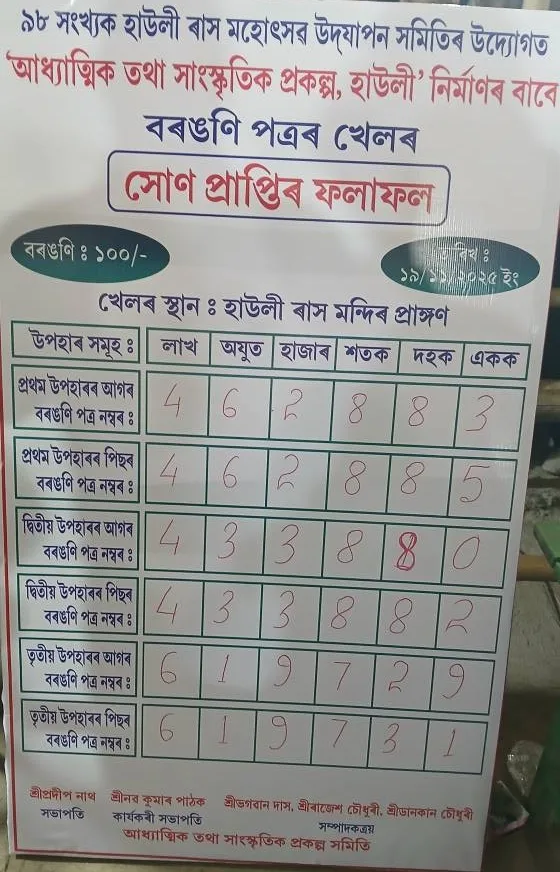 ৯৮ সংখ্যক হাউলী ৰাস মহোৎসৱ উদ্‌যাপন সমিতিৰ উদ্যোগত
'আধ্যাত্মিক তথা সাংস্কৃতিক প্ৰকল্প, হাউলী' নিৰ্মাণৰ বাবে
বৰঙণি পত্ৰৰ খেলৰ
সোণ প্ৰাপ্তিৰ ফলাফল
বৰঙণি ঃ ১০০/-
তাৰিখ ঃ
১৯/১১/২০২৫ ইং
খেলৰ স্থান ঃ হাউলী ৰাস মন্দিৰ প্ৰাঙ্গণ
উপহাৰ সমূহ ঃ লাখ অযুত হাজাৰ শতক দহক একক
প্ৰথম উপহাৰৰ আগৰ
বৰঙণি পত্ৰ নম্বৰ ঃ 4 6 2 8 8 3
প্ৰথম উপহাৰৰ পিছৰ
বৰঙণি পত্ৰ নম্বৰ ঃ 4 6 2 8 8 5
দ্বিতীয় উপহাৰৰ আগৰ
বৰঙণি পত্ৰ নম্বৰ ঃ 4 3 3 8 8 0
দ্বিতীয় উপহাৰৰ পিছৰ
বৰঙণি পত্ৰ নম্বৰ ঃ 4 3 3 8 8 2
তৃতীয় উপহাৰৰ আগৰ
বৰঙণি পত্ৰ নম্বৰ ঃ 6 1 9 7 2 9
তৃতীয় উপহাৰৰ পিছৰ
বৰঙণি পত্ৰ নম্বৰ ঃ 6 1 9 7 3 1
শ্ৰীপ্ৰদীপ নাথ শ্ৰীনৱ কুমাৰ পাঠক শ্ৰীভগৱান দাস, শ্ৰীৰাজেশ চৌধুৰী, শ্ৰীডানকান চৌধুৰী
সভাপতি কাৰ্যকৰী সভাপতি সম্পাদকত্ৰয়
আধ্যাত্মিক তথা সাংস্কৃতিক প্ৰকল্প সমিতি